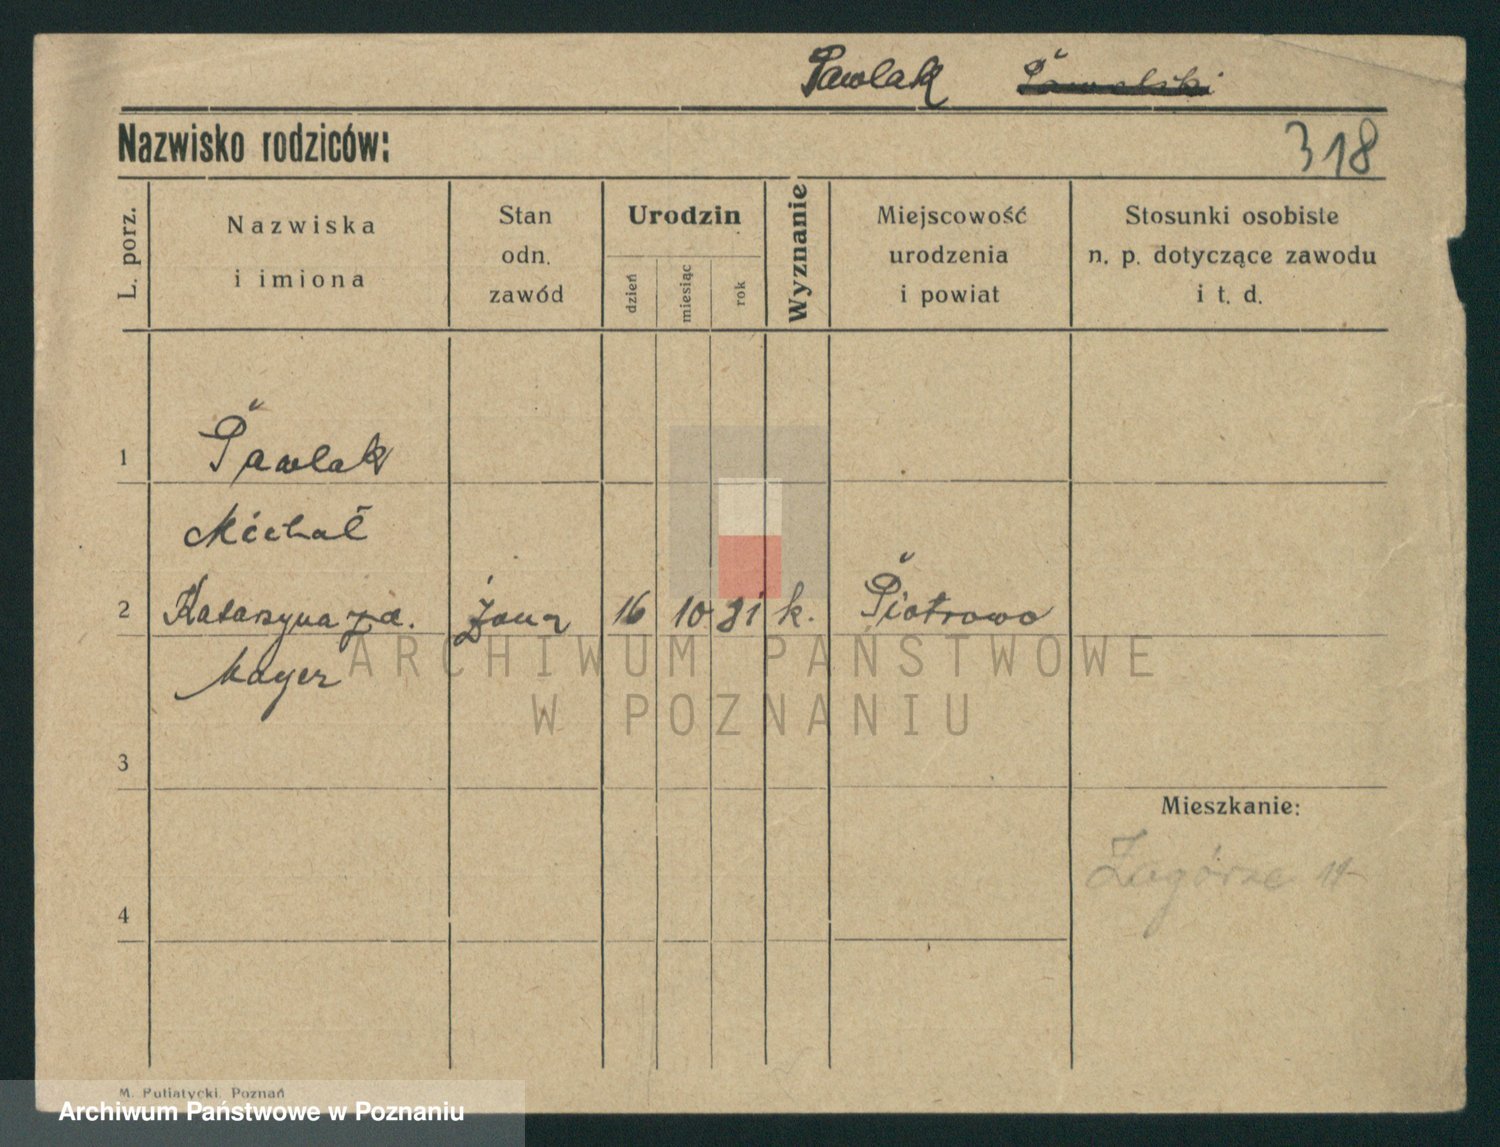 Pawlak Pawelski
Nazwisko rodziców:
318
L. porz.
Nazwiska
i imiona
Stan
odn.
zawód
Urodzin
dzień
miesiąc
rok
Wyznanie
Miejscowość
urodzenia
i powiat
Stosunki osobiste
n. p. dotyczące zawodu
i t. d.
1 Pawlak
Michał
2 Katarzyna zd. Żona 16 10 81 k. Piotrowo
Mayer
3
Mieszkanie:
Zagórze 11
4
ARCHIWUM PAŃSTWOWE
W POZNANIU
M. Putiatycki, Poznań
Archiwum Państwowe w Poznaniu